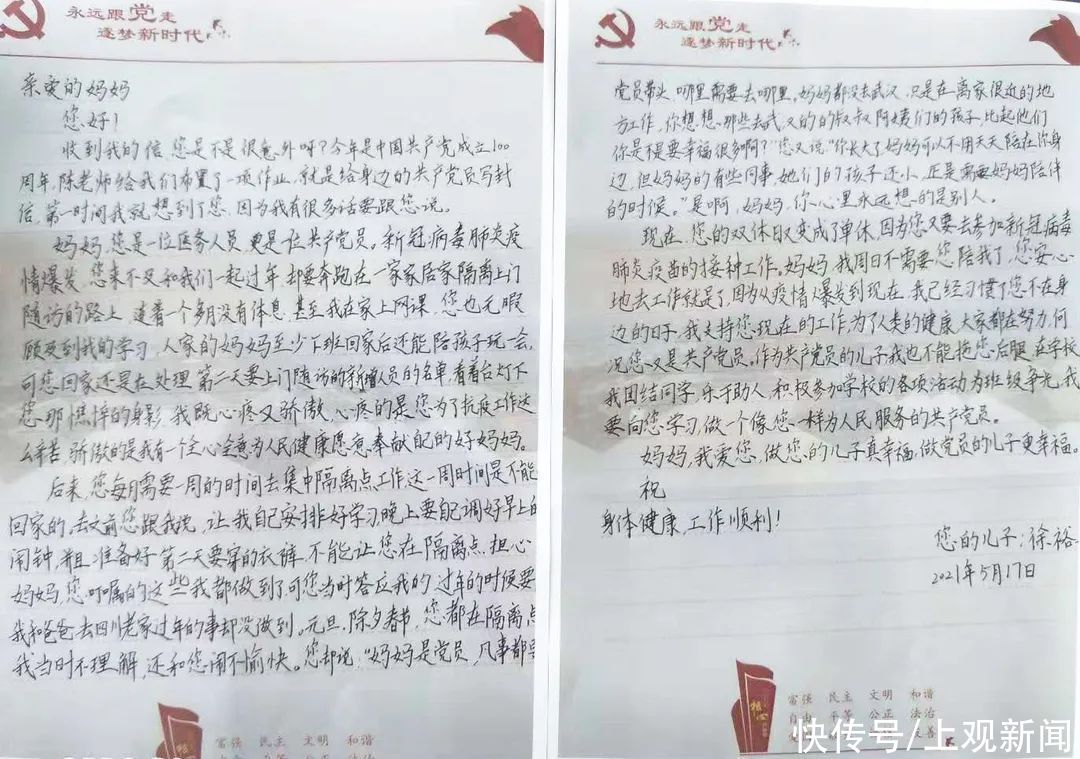 永远跟党走
逐梦新时代
亲爱的妈妈
您好！
收到我的信,您是不是很意外呀？今年是中国共产党成立100
周年,陈老师给我们布置了一项作业,就是给身边的共产党员写封
信,第一时间我就想到了您,因为我有很多话要跟您说。
妈妈,您是一位医务人员,更是位共产党员。新冠病毒肺炎疫
情爆发,您来不及和我们一起过年,却要奔跑在一家家居家隔离上门
随访的路上,连着一个多月没有休息,甚至我在家上网课,您也无暇
顾及到我的学习,人家的妈妈至少下班回家后还能陪孩子玩一会,
可您回家还是在处理第二天要上门随访的新增人员的名单,看着台灯下
您那憔悴的身影,我既心疼又骄傲,心疼的是您为了抗疫工作这
么辛苦,骄傲的是我有一个全心全意为人民健康愿意奉献自己的好妈妈。
后来,您每月需要一周的时间去集中隔离点工作,这一周时间是不能
回家的,去之前您跟我说,让我自己安排好学习,晚上要自己调好早上的
闹钟,并且准备好第二天要穿的衣裤,不能让您在隔离点担心,
妈妈,您叮嘱的这些我都做到了,可您当时答应我的,过年的时候要
我和爸爸去四川老家过年的事却没做到。元旦、除夕春节,您都在隔离点
我当时不理解,还和您闹不愉快。您却说：“妈妈是党员,凡事都要
富强 民主 文明 和谐
永远跟党走
逐梦新时代
党员带头,哪里需要去哪里。妈妈都没去武汉,只是在离家很近的地
方工作,你想想,那些去武汉的的叔叔阿姨们的孩子,比起他们
你是不是要幸福很多啊？”您又说：“你长大了,妈妈可以不用天天陪在你身
边,但妈妈的有些同事,她们的孩子还小,正是需要妈妈陪伴
的时候。”是啊,妈妈,你心里永远想的是别人。
现在,您的双休日又变成了单休,因为您又要去参加新冠病毒
肺炎疫苗的接种工作。妈妈,我周日不需要您陪我了,您安心
地去工作就是了,因为从疫情爆发到现在,我已经习惯了您不在身
边的日子,我支持您现在的工作,为了人类的健康,大家都在努力,何
况您又是共产党员。作为共产党员的儿子我也不能拖您后腿,在学校
我团结同学,乐于助人,积极参加学校的各项活动为班级争光,我
要向您学习,做一个像您一样为人民服务的共产党员。
妈妈,我爱您,做您的儿子真幸福,做党员的儿子更幸福。
祝
身体健康,工作顺利！
您的儿子：徐裕
2021年5月17日
富强 民主 文明 和谐
自由 平等 公正 法治
快传号/上观新闻